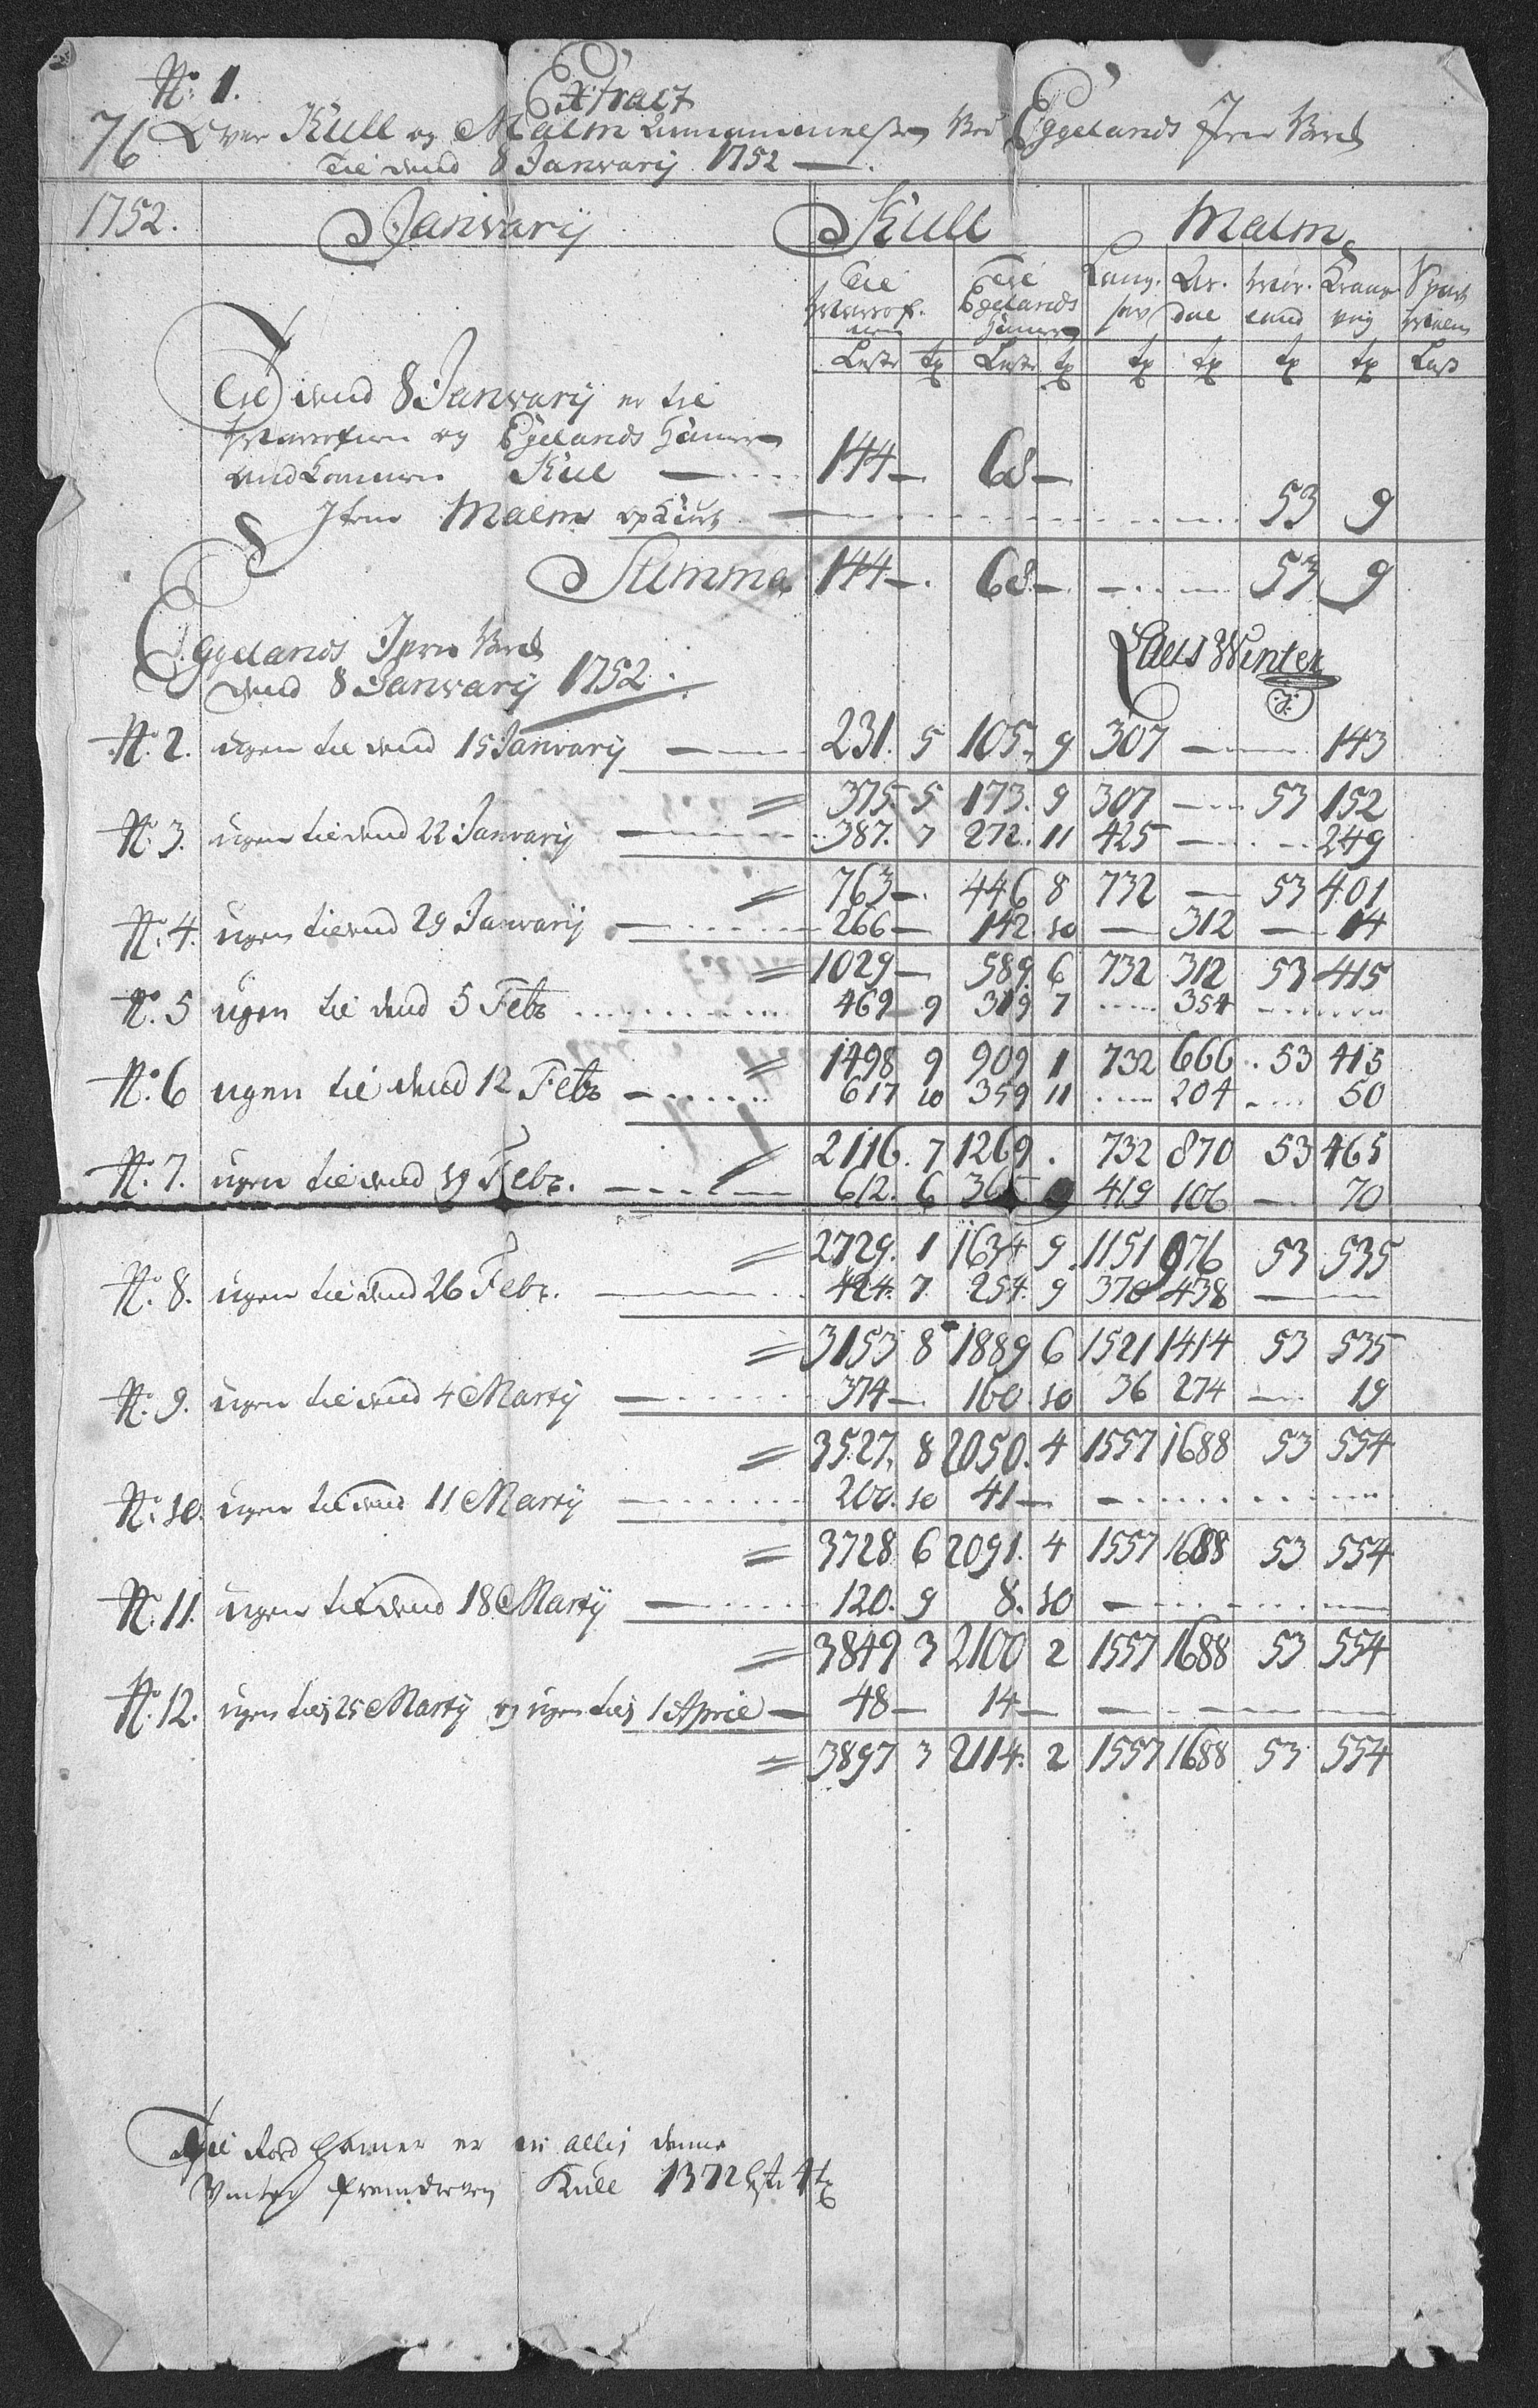 No. 1. Extract
76 Over Kull og Malm Ved Eggelands Jern Verck
Til dend 8 Janvarij 1752
1752. Janvarij Kull Malm
Til Masofnen Til Egelands Hammer Lang- Ar- Krage
sev dal sund vig
Lester tr Lester tr tr tr tr tr Lest
Til dend 8 Janvarij er til
Masofnen og Egelands Hammer
indkommen Kul — 144 — 68 —
Item Malm — 53 9
Summa 144 — 68 — — 53 9
Eggelands Jern Verck
dend 8 Janvarij 1752.
Laus Winter
No. 2. ugen til dend 15 Janvarij — 231. 5 105. 9 307 — 143
= 375 5 173. 9 307 — 53 152
No. 3. ugen til dend 22 Janvarij — 387. 7 272. 11 425 — 249
= 763 — 446 8 732 — 53 401
No. 4. ugen til dend 29 Janvarij — 266 — 142. 10 — 312 — 14
= 1029 — 589. 6 732 312 53 415
No. 5 ugen til dend 5 Febr — 469 9 319 7 — 354 —
= 1498 9 909 1 732 666. 53 415
No. 6 ugen til dend 12 Febr — 617 10 359 11 — 204 — 50
= 2116. 7 1269. 732 870 53 465
No. 7. ugen til dend 19 Febr. — 612. 6 365 9 419 106 — 70
= 2729. 1 1634 9. 1151 976 53 535
No. 8. ugen til dend 26 Febr. — 424. 7. 254. 9 370 438 —
= 3153 8 1889 6 1521 1414 53 535
No. 9. ugen til dend 4 Martij — 374 — 160. 10 36 274 — 19
= 3527. 8 2050. 4 1557 1688 53 554
No. 10. ugen til dend 11 Martij — 200. 10 41 — —
= 3728. 6 2091. 4 1557 1688 53 554
No. 11. ugen til dend 18 Martij — 120. 9 8. 10 —
= 3849 3 2100 2 1557 1688 53 554
No. 12. ugen til 25 Martij og ugen til 1 April — 48 — 14 — —
= 3897 3 2114. 2 1557 1688 53 554
Til Hamer er alles denne
Vinter Kull 1372 Lst 4 tr